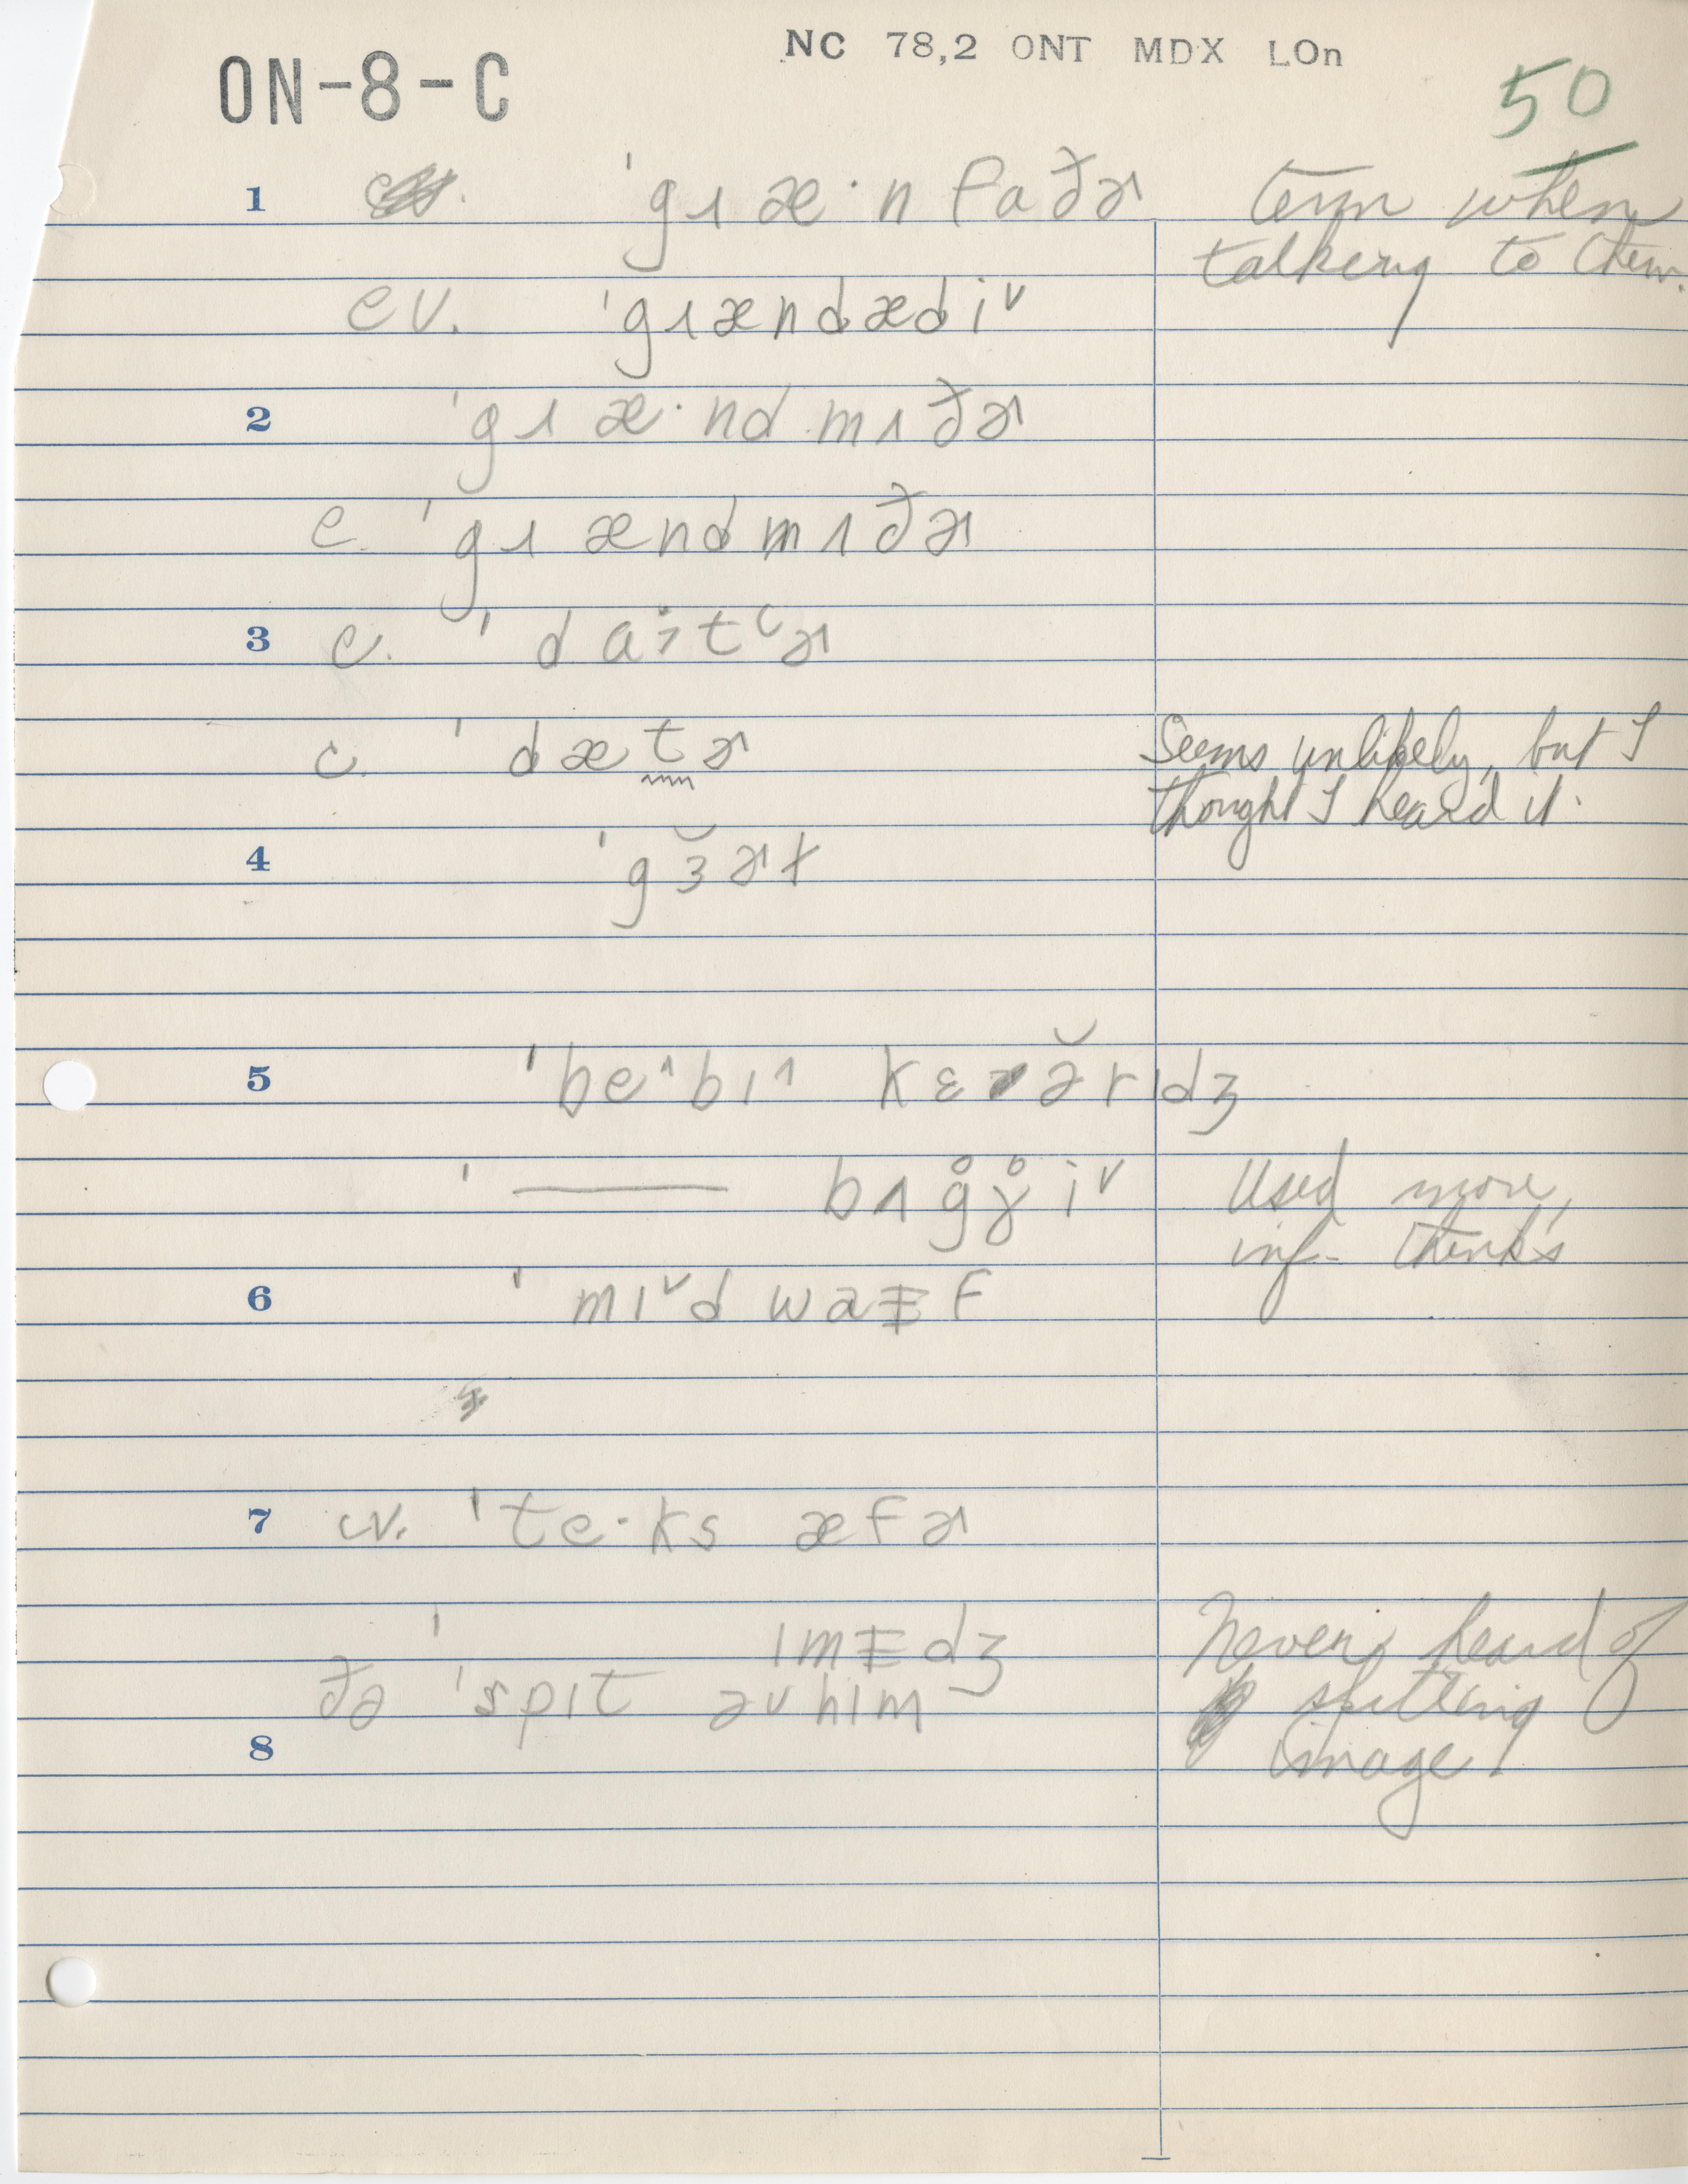 ON-8-C NC 78,2 ONT MDX LOn
50
1 ˈgɹæ·nfaðɚ term when
talking to them.
cv. ˈgɹændædiᵛ
2 ˈgɹæ·ndmʌðɚ
c. ˈgɹændmʌðɚ
3 c. ˈdɑɪtᶜɚ
c. ˈdætɚ Seems unlikely, but I
thought I heard it.
4 ˈgɜ̆ɚɫ
5 ˈbe^bɪ^ kɛə̆rɪdʒ
ˈ—— bʌg̊ɣ̊iᵛ Used more,
inf. thinks
6 ˈmɪᵛdwaɪf
7 cv. ˈte·ks æfɚ
ˈ ɪmɪdʒ Never heard of
ðə ˈspɪt əvhɪm spitting
8 image.